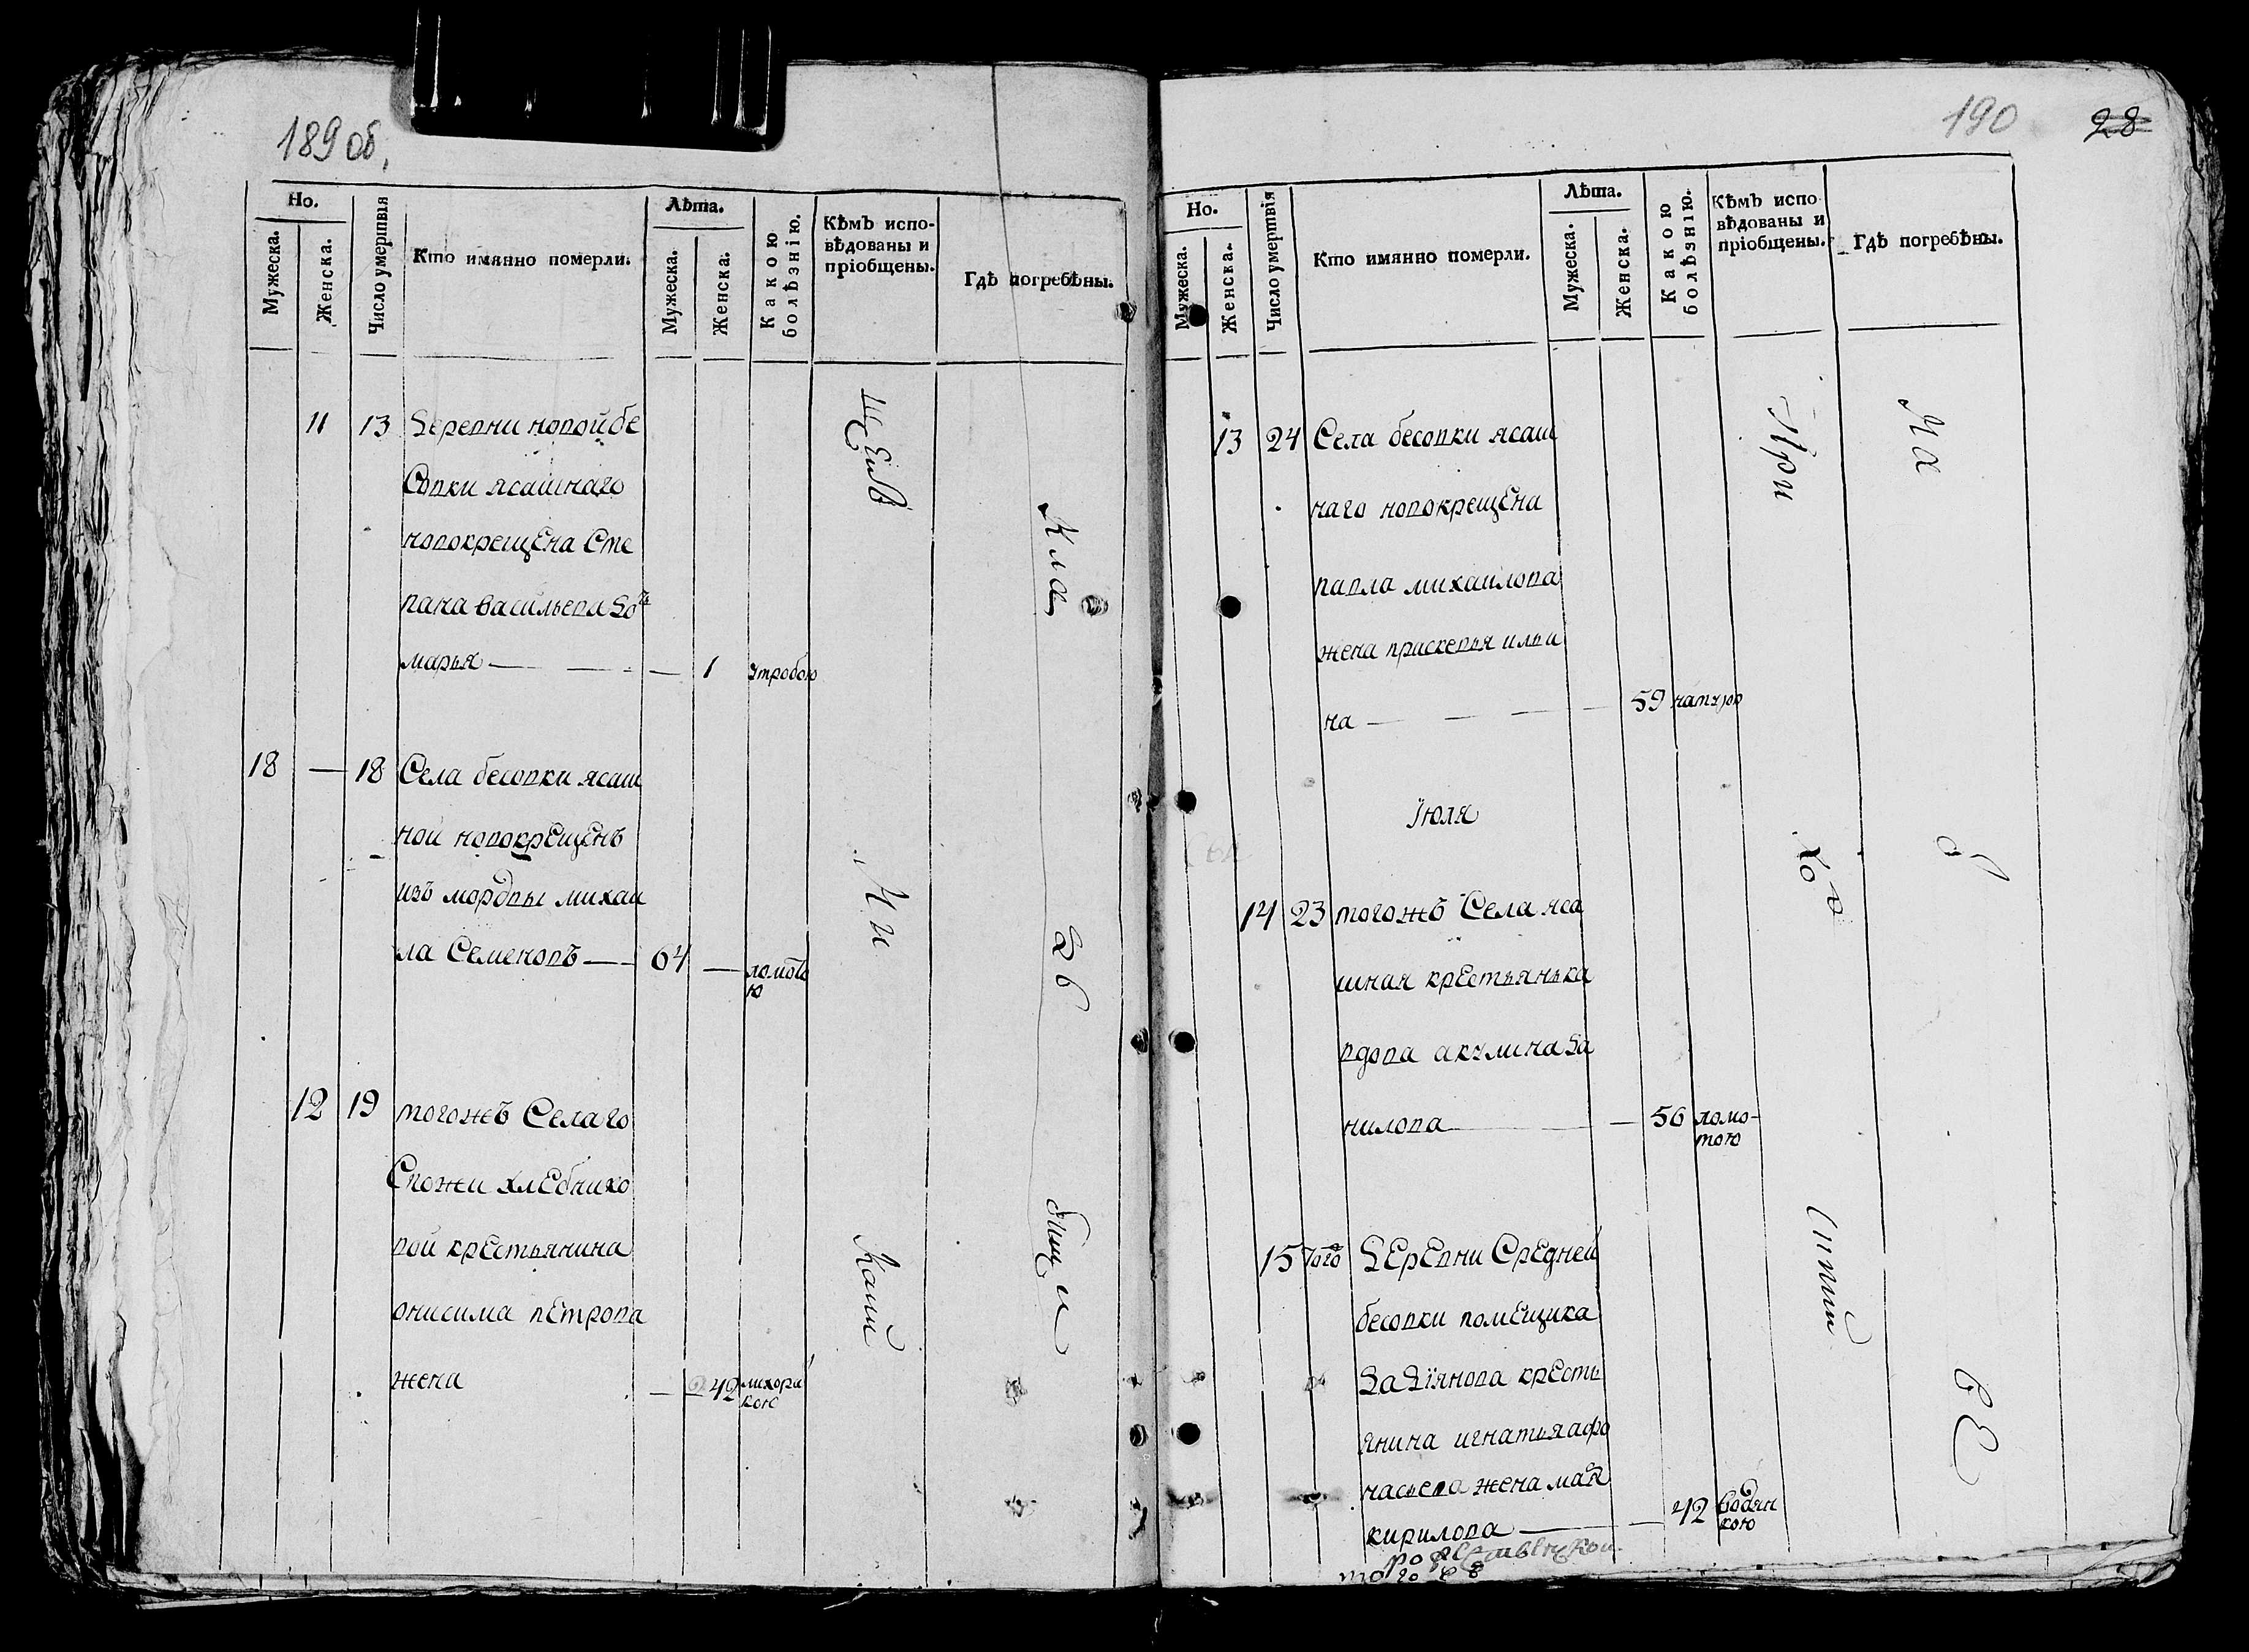 189 об.
Но.
Мужеска.
Женска.
Число умертвія
Кто имянно померли.
Лѣта.
Мужеска.
Женска.
Какою болѣзнію.
Кѣмъ испо-
вѣдованы и
пріобщены.
Гдѣ погребѣны.
11 13 Деревни новой бе
совки ясашнаго
новокрещена Сте
пана васильева до
марья — — — 1 утробою
18 — 18 Села бесовки ясаш
ной новокрещенъ
изъ мордвы михаи
ла Семеновъ — 64 — ломото
ю
12 19 тогожъ Села го
спожи хлебнико
вой крестьянина
онисима петрова
жена — — 42 лихора
кою
Кла
д б
бищи
190
28
Но.
Мужеска.
Женска.
Число умертвія
Кто имянно померли.
Лѣта.
Мужеска.
Женска.
Какою болѣзнію.
Кѣмъ испо
вѣдованы и
пріобщены.
Гдѣ погребѣны.
13 24 Села бесовки ясаш
наго новокрещена
павла михаилова
жена прасковья ильи
на — — — — 59 натуро
Іюля
14 23 тогожъ Села яса
шная крестьянька
вдова акулина да
нилова — — 56 ломо-
тою
15 того Деревни Средней
бесовки помещика
Дадіянова кресть
янина игнатья афо
насьева жена
кирилова — — 42 водян
кою
При
хо
На